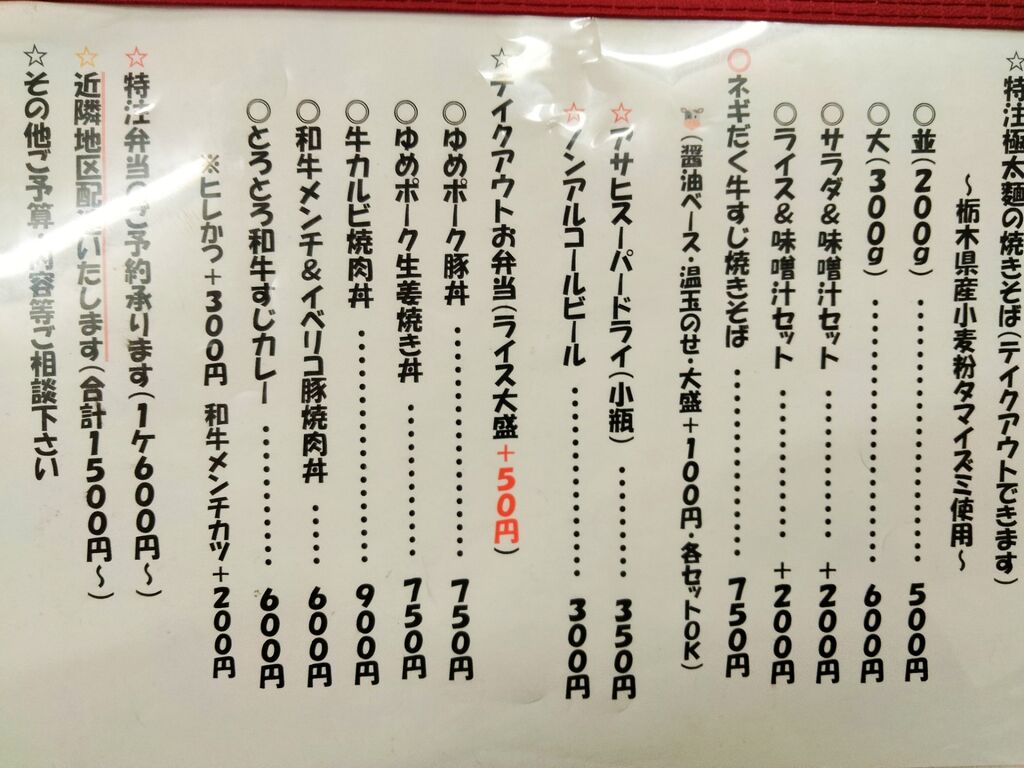 ☆特注極太麺の焼きそば(テイクアウトできます)
～栃木県産小麦粉タマイズミ使用～
○並(200g)‥‥‥‥‥‥‥‥500円
○大(300g)‥‥‥‥‥‥‥‥600円
○サラダ&味噌汁セット‥‥‥‥‥+200円
○ライス&味噌汁セット‥‥‥‥‥+200円
○ネギだく牛すじ焼きそば‥‥‥‥‥750円
(醤油ベース・温玉のせ・大盛+100円・各セットOK)
☆アサヒスーパードライ(小瓶)‥‥‥350円
☆ノンアルコールビール‥‥‥‥‥300円
☆テイクアウトお弁当(ライス大盛+50円)
○ゆめポーク豚丼‥‥‥‥‥‥750円
○ゆめポーク生姜焼き丼‥‥‥‥750円
○牛カルビ焼肉丼‥‥‥‥‥‥900円
○和牛メンチ&イベリコ豚焼肉丼‥‥600円
○とろとろ和牛すじカレー‥‥‥‥600円
※ヒレかつ+300円 和牛メンチカツ+200円
☆特注弁当のご予約承ります(1ケ600円～)
☆近隣地区配達いたします(合計1500円～)
☆その他ご予算・内容等ご相談下さい